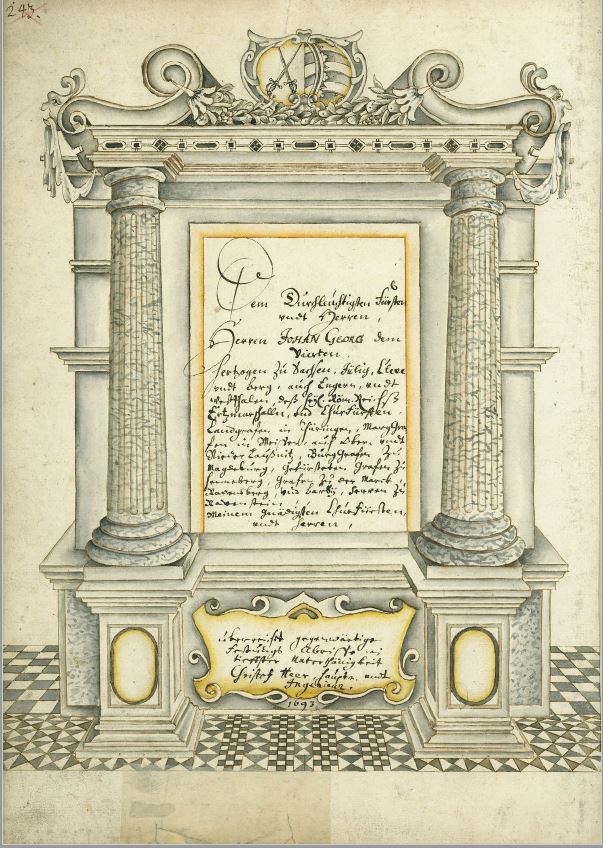 243.
Dem Durchleuchtigsten Fürsten
undt Herren,
Herren JOHAN GEORG dem
Vierten,
Hertzogen Zu Sachsen, Jülig, Cleve
undt Berg, auch Engern, undt
Westphalen, deß Heyl. Röm. Reichß
Ertzmarschallen, und ChurFürsten,
Landgrafen in Thüringen, MargGra
fen in Meißen, auch Ober- undt
Nieder Laußnitz, BurgGrafen Zu
Magdeburg, Gefürsteten Grafen Zu
Henneberg, Grafen Zu der Marck,
Ravensberg, und Barbÿ, Herren Zu
Ravenstein,
Meinem gnädigsten ChurFürsten,
undt Herren,
überreicht gegenwärtige
Festungs Abriße in
tieffster Unterthänigkeit
Christof Heer, Hauptm. undt
Ingenieur.
1693